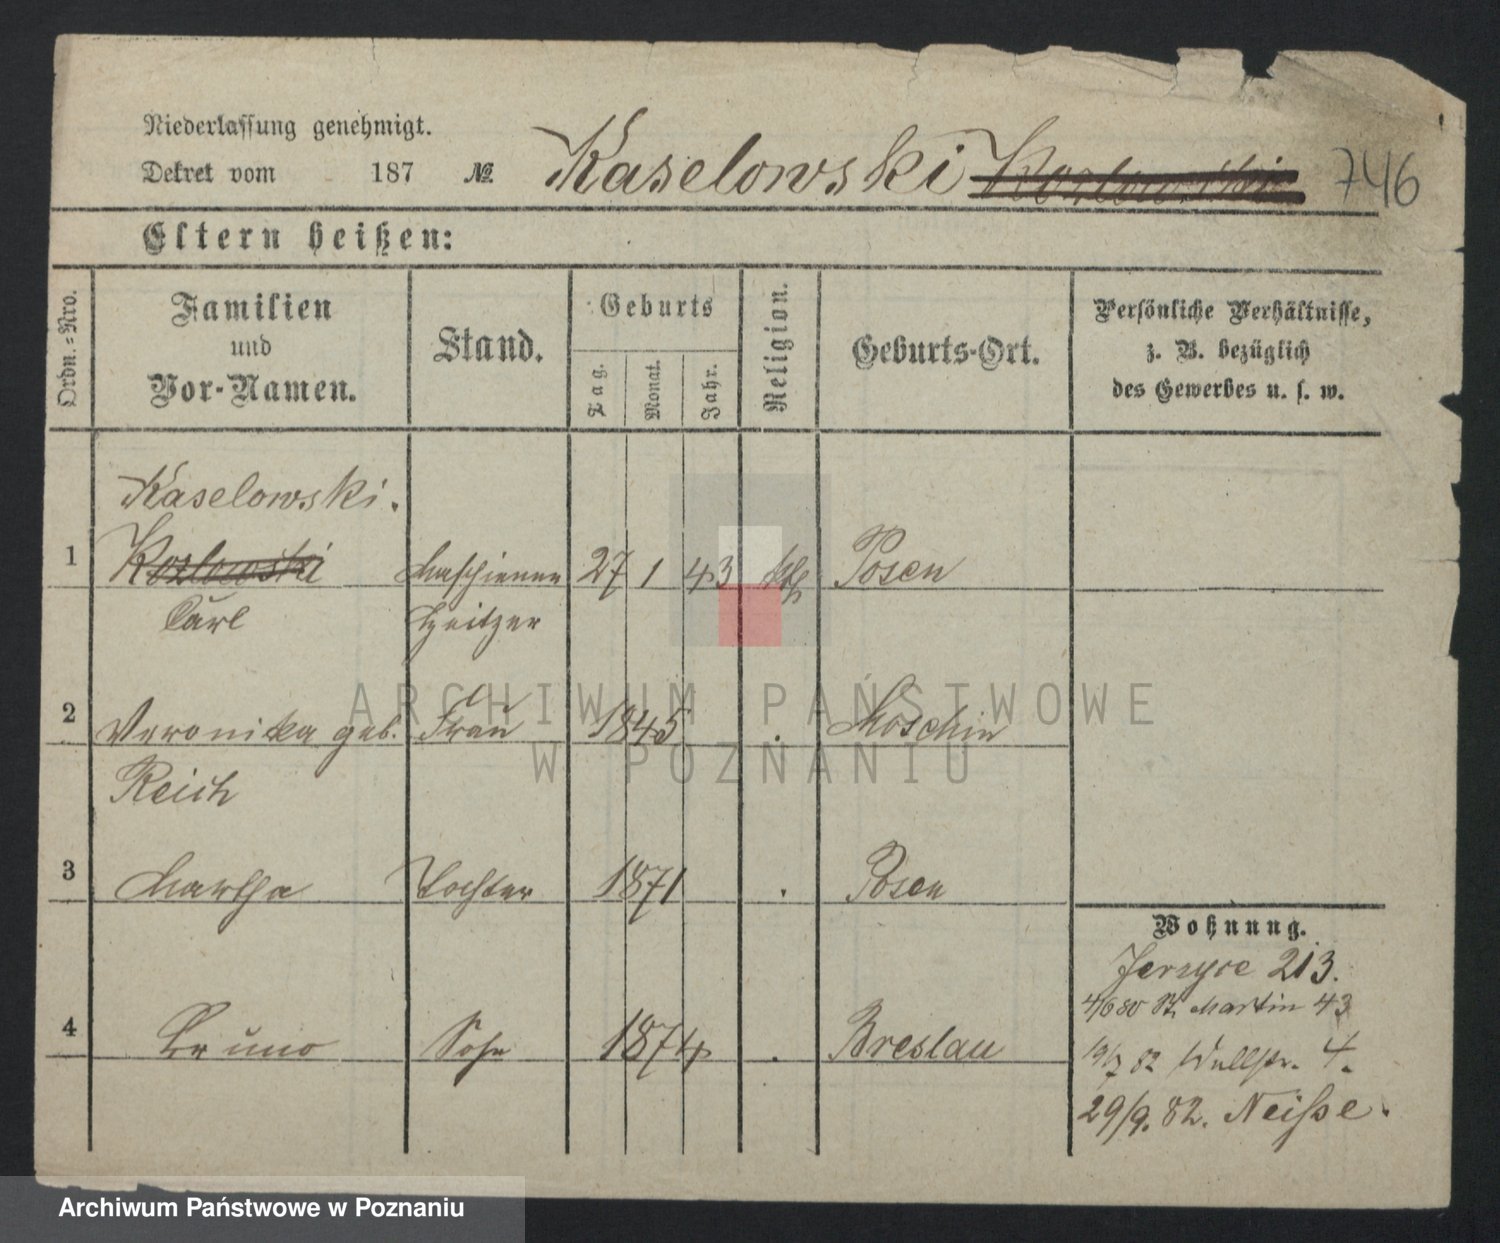 Niederlassung genehmigt.
Dekret vom 187 № Kaselowski Kozlowski 746
Eltern heißen:
Ordn.=Nro.
Familien
und
Vor-Namen.
Stand.
Geburts
Tag.
Monat.
Jahr.
Religion.
Geburts-Ort.
Persönliche Verhältnisse,
z. B. bezüglich
des Gewerbes u. s. w.
Kaselowski.
1 Kozlowski Maschienen 27 1 43 kth Posen
Carl Heitzer
2 Veronika geb. Frau 1845 Moschin
Reich
3 Martha Tochter 1871 Posen
Wohnung.
Jerzyce 213.
4/6 80 St. Martin 43
4 Bruno Sohn 1874 Breslau
19/7 82 Wallstr. 4.
29/9. 82. Neisse.
ARCHIWUM PAŃSTWOWE
W POZNANIU
Archiwum Państwowe w Poznaniu